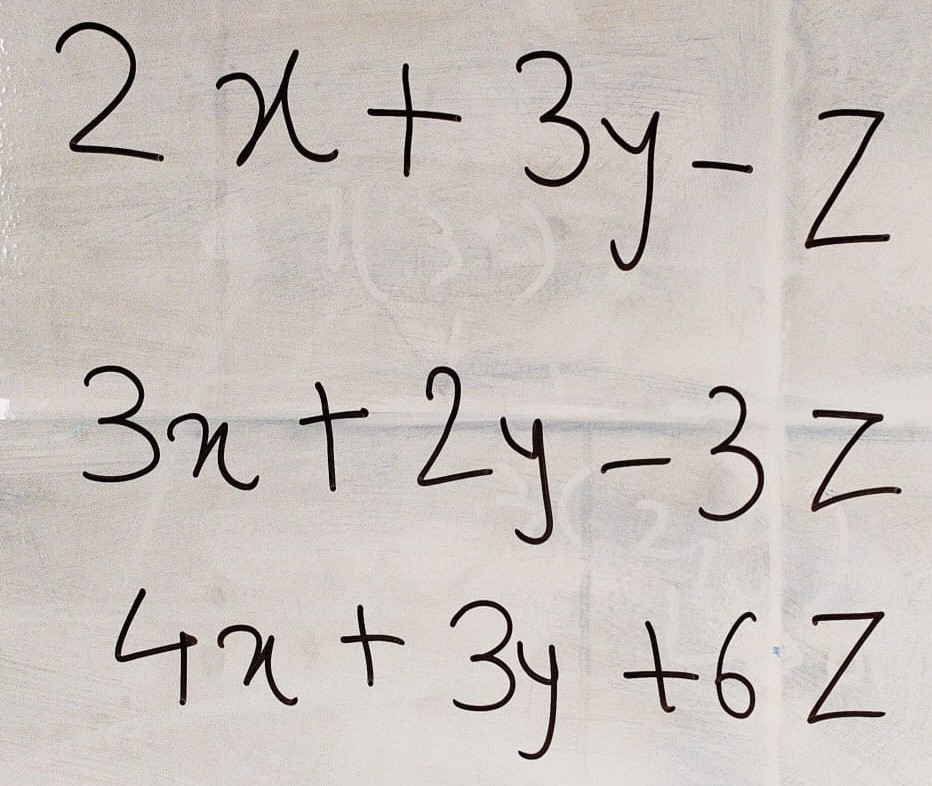 2x + 3y - z
3x + 2y - 3z
4x + 3y + 6z